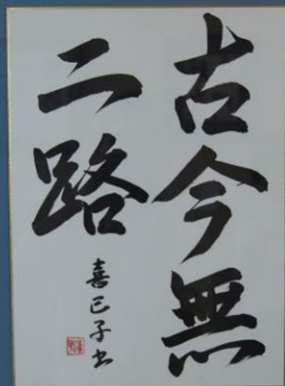 古今無
二路
喜己子書